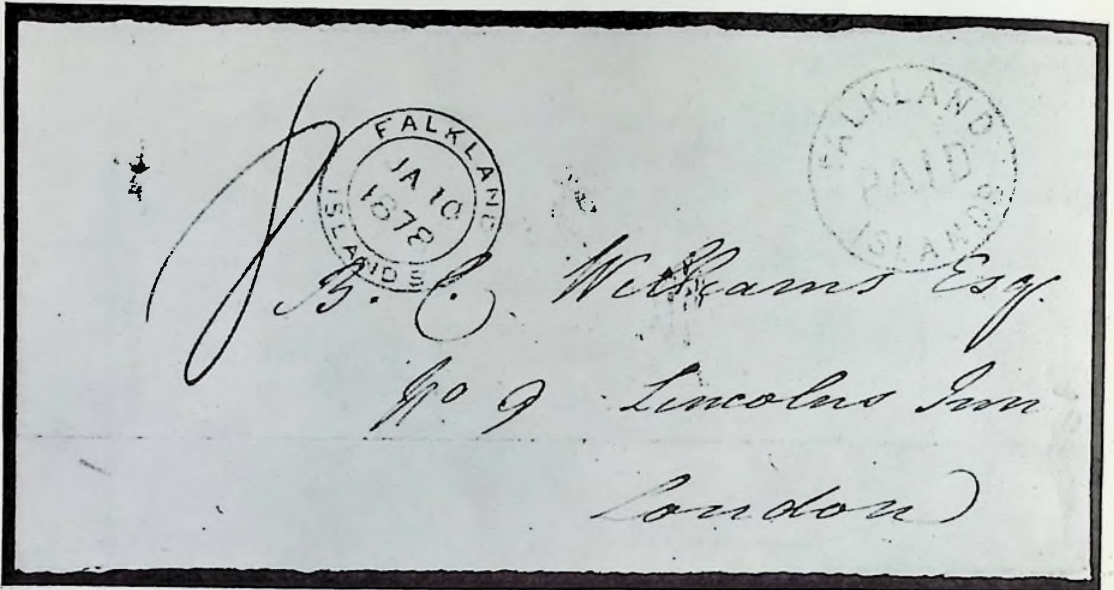 FALKLAND ISLANDS
JA 10
1878
FALKLAND ISLANDS
PAID
B. C. Williams Esq.
No 9 Lincolns Inn
London